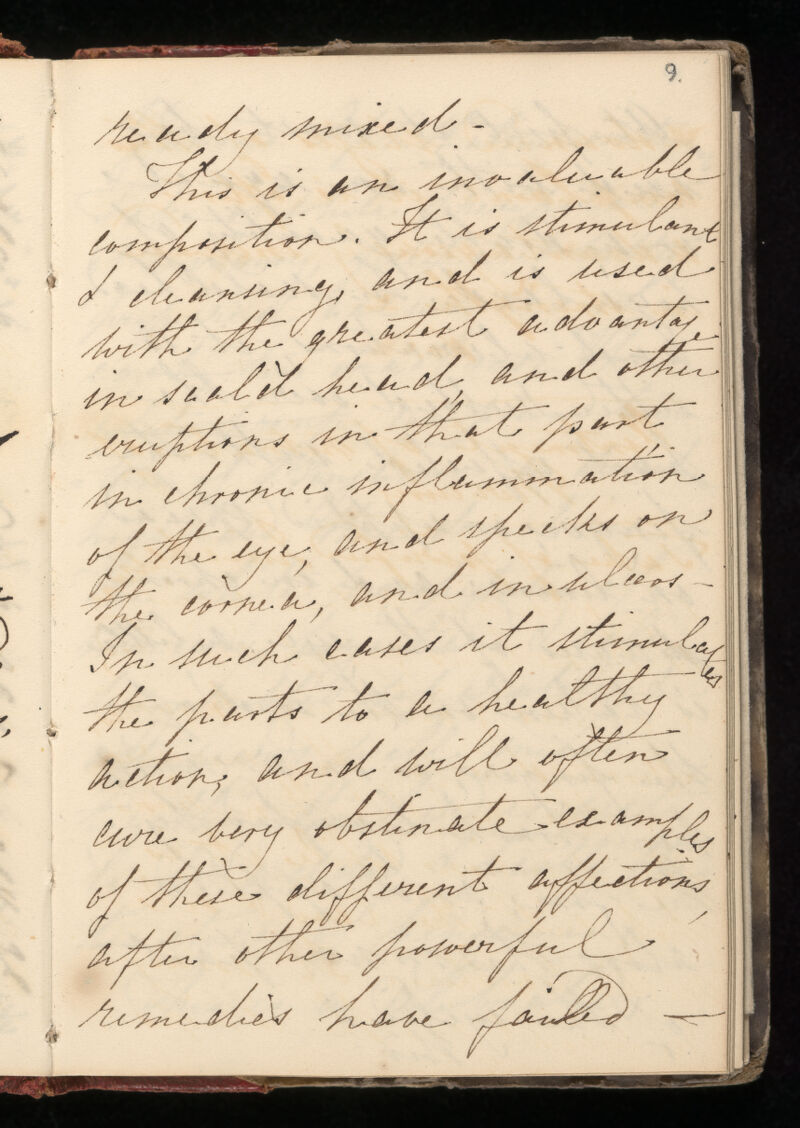 9.
ready mixed -
This is an invaluable
composition. It is stimulant
& cleansing, and is used
with the greatest advantage
in scald head, and other
eruptions in that part,
in chronic inflammation
of the eye, and specks on
the cornea, and in ulcers -
In such cases it stimulates
the parts to a healthy
action, and will often
cure very obstinate examples
of these different affections,
after other powerful
remedies have failed —